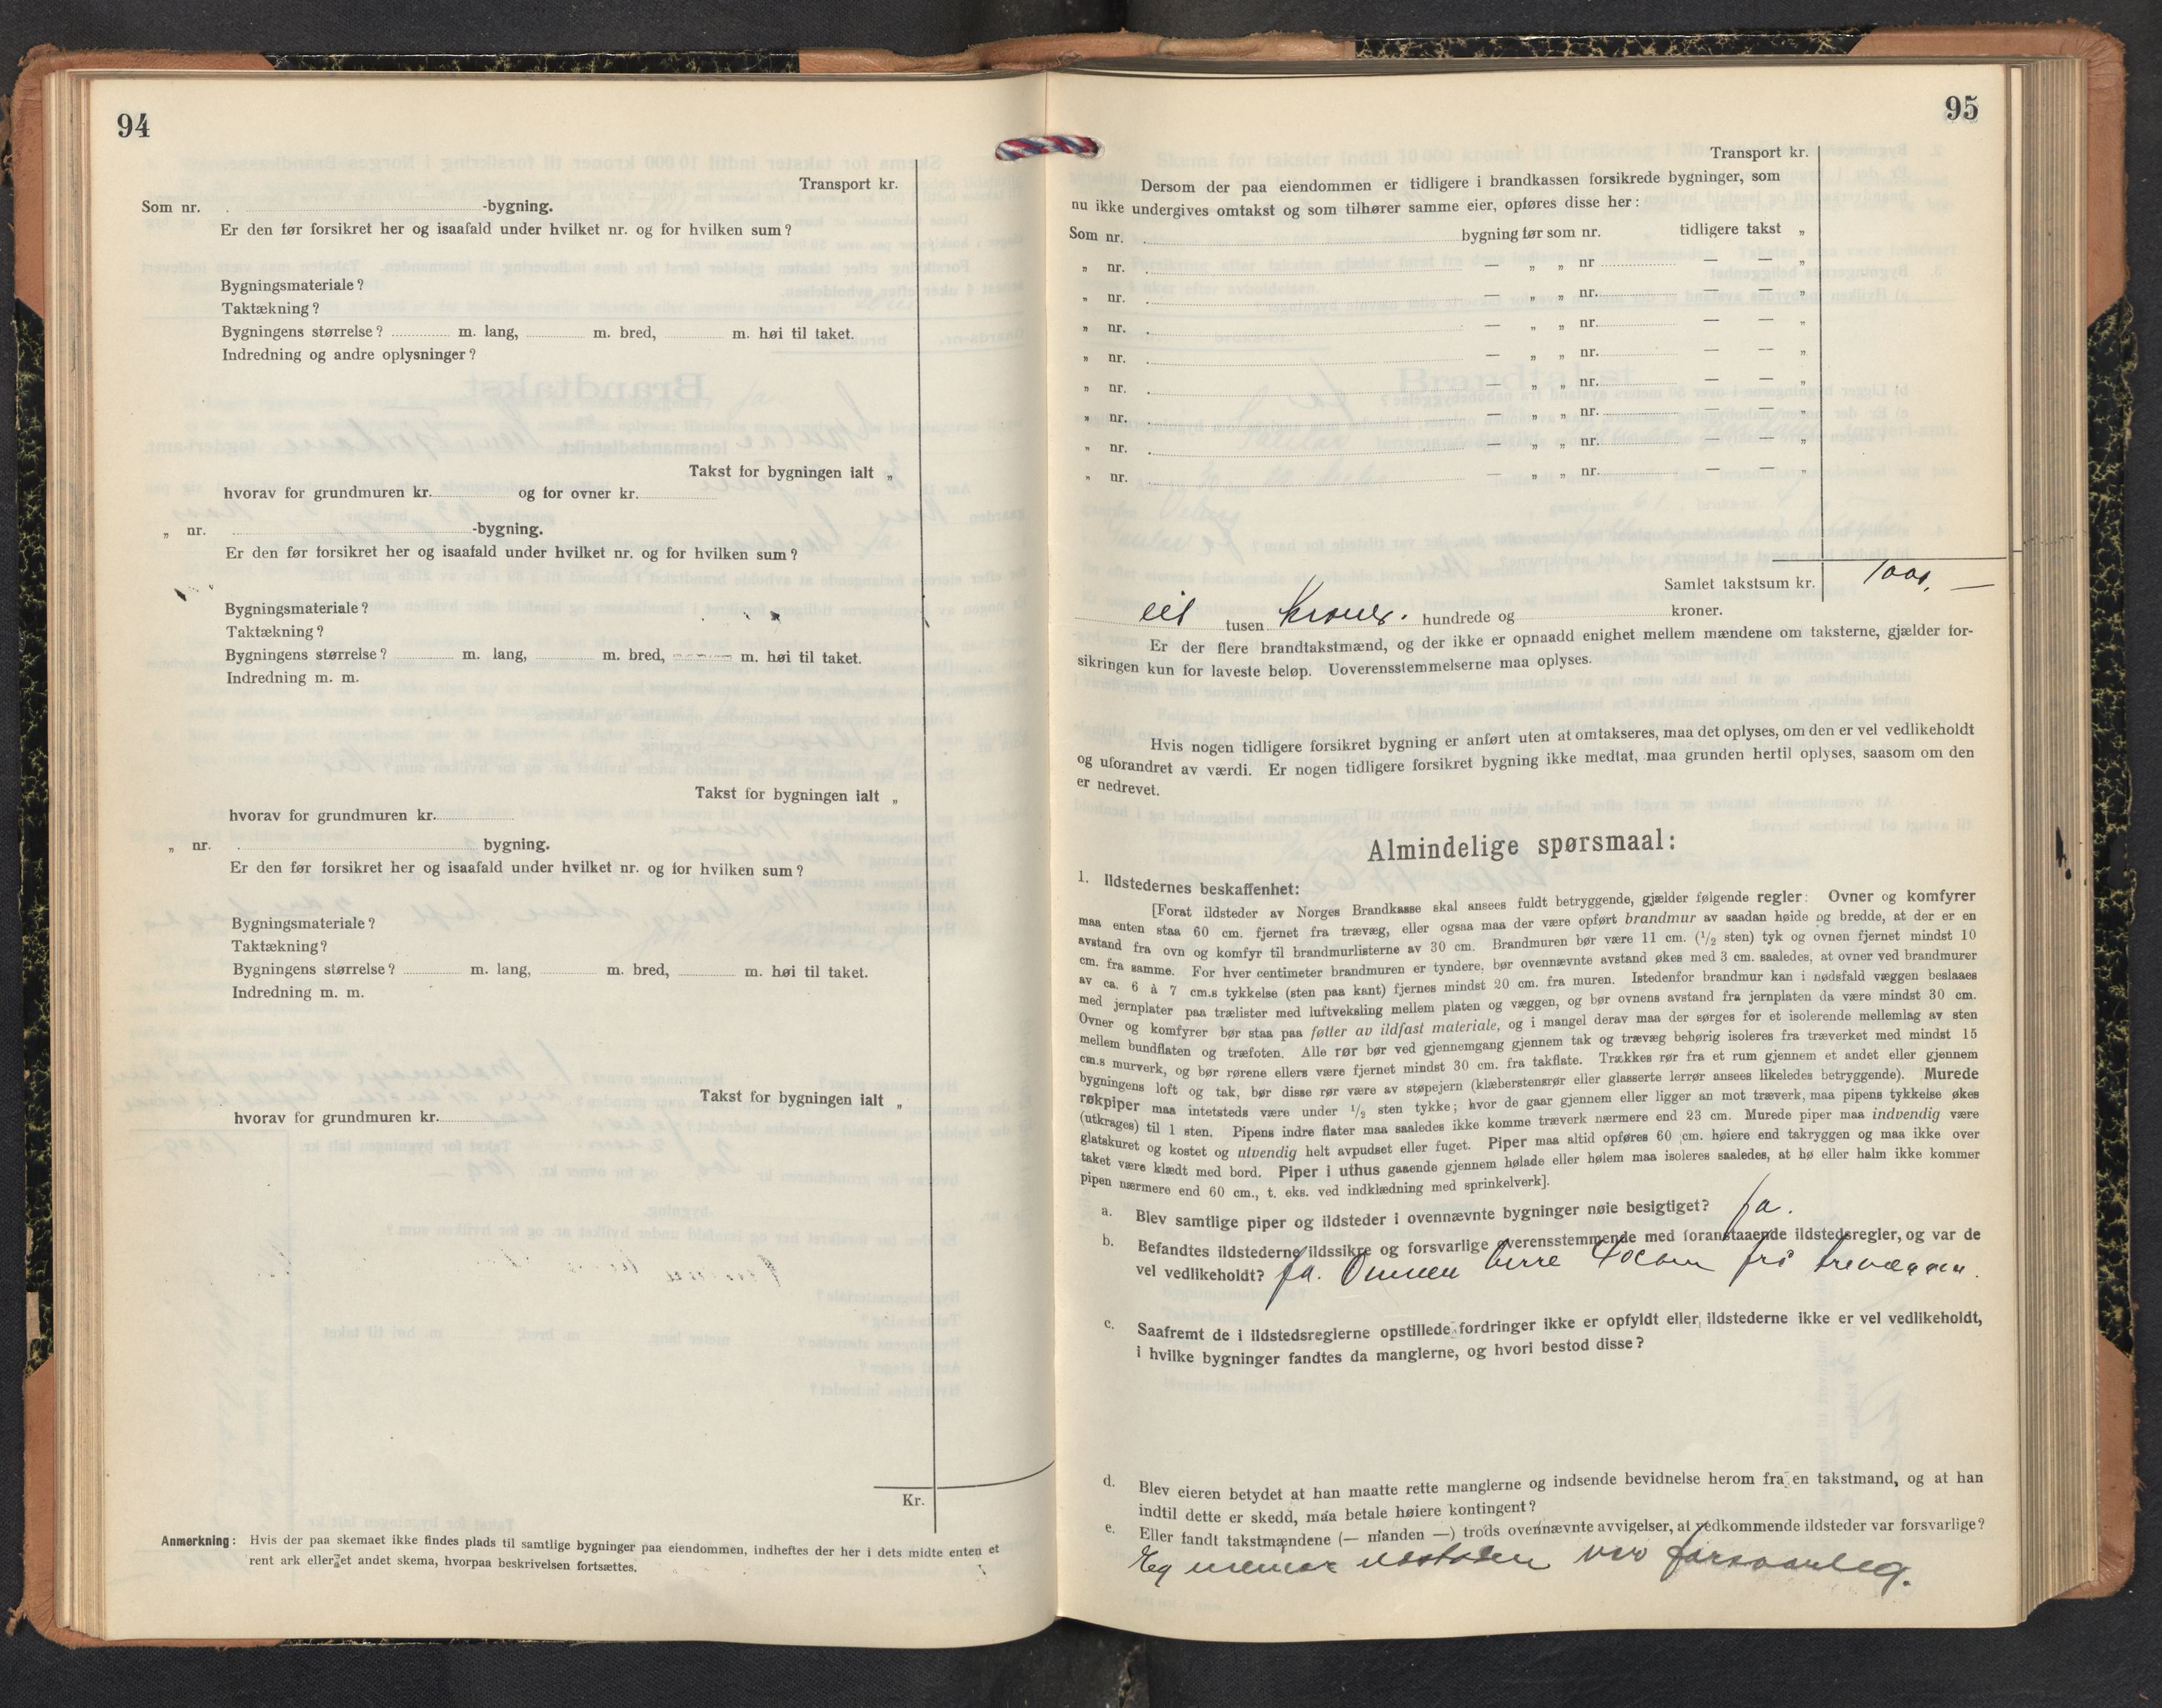 94
Transport kr.
Som nr. -bygning.
Er den før forsikret her og isaafald under hvilket nr. og for hvilken sum?
Bygningsmateriale?
Taktækning?
Bygningens størrelse? m. lang, m. bred, m. høi til taket.
Indredning og andre oplysninger?
Takst for bygningen ialt „
hvorav for grundmuren kr. og for ovner kr.
„ nr. -bygning.
Er den før forsikret her og isaafald under hvilket nr. og for hvilken sum?
Bygningsmateriale?
Taktækning?
Bygningens størrelse? m. lang, m. bred, m. høi til taket.
Indredning m. m.
Takst for bygningen ialt „
hvorav for grundmuren kr.
„ nr. bygning.
Er den før forsikret her og isaafald under hvilket nr. og for hvilken sum?
Bygningsmateriale?
Taktækning?
Bygningens størrelse? m. lang, m. bred, m. høi til taket.
Indredning m. m.
Takst for bygningen ialt „
hvorav for grundmuren kr.
Kr.
Anmerkning: Hvis der paa skemaet ikke findes plads til samtlige bygninger paa eiendommen, indheftes der her i dets midte enten et
rent ark eller et andet skema, hvorpaa beskrivelsen fortsættes.
95
Transport kr.
Dersom der paa eiendommen er tidligere i brandkassen forsikrede bygninger, som
nu ikke undergives omtakst og som tilhører samme eier, opføres disse her:
Som nr. bygning før som nr. tidligere takst „
„ nr. — „ „ nr — — „
„ nr. — „ „ nr. — — „
„ nr. — „ „ nr. — — „
„ nr. — „ „ nr. — — „
„ nr. — „ „ nr. — — „
„ nr. — „ „ nr. — — „
„ nr. — „ „ nr. — — „
„ nr. — „ „ nr. — — „
Samlet takstsum kr. 1000,—
eit tusen Kroner. hundrede og kroner.
Er der flere brandtakstmænd, og der ikke er opnaadd enighet mellem mændene om taksterne, gjælder for-
sikringen kun for laveste beløp. Uoverensstemmelserne maa oplyses.
Hvis nogen tidligere forsikret bygning er anført uten at omtakseres, maa det oplyses, om den er vel vedlikeholdt
og uforandret av værdi. Er nogen tidligere forsikret bygning ikke medtat, maa grunden hertil oplyses, saasom om den
er nedrevet.
Almindelige spørsmaal:
1. Ildstedernes beskaffenhet:
[Forat ildsteder av Norges Brandkasse skal ansees fuldt betryggende, gjælder følgende regler: Ovner og komfyrer
maa enten staa 60 cm. fjernet fra trævæg, eller ogsaa maa der være opført brandmur av saadan høide og bredde, at der er en
avstand fra ovn og komfyr til brandmurlisterne av 30 cm. Brandmuren bør være 11 cm. (1/2 sten) tyk og ovnen fjernet mindst 10
cm. fra samme. For hver centimeter brandmuren er tyndere, bør ovennævnte avstand økes med 3 cm. saaledes, at ovner ved brandmurer
av ca. 6 à 7 cm.s tykkelse (sten paa kant) fjernes mindst 20 cm. fra muren. Istedenfor brandmur kan i nødsfald væggen beslaaes
med jernplater paa trælister med luftveksling mellem platen og væggen, og bør ovnens avstand fra jernplaten da være mindst 30 cm.
Ovner og komfyrer bør staa paa føtter av ildfast materiale, og i mangel derav maa der sørges for et isolerende mellemlag av sten
mellem bundflaten og træfoten. Alle rør bør ved gjennemgang gjennem tak og trævæg behørig isoleres fra træverket med mindst 15
cm.s murverk, og bør rørene ellers være fjernet mindst 30 cm. fra takflate. Trækkes rør fra et rum gjennem et andet eller gjennem
bygningens loft og tak, bør disse rør være av støpejern (klæberstensrør eller glasserte lerrør ansees likeledes betryggende). Murede
røkpiper maa intetsteds være under 1/2 sten tykke; hvor de gaar gjennem eller ligger an mot træverk, maa pipens tykkelse økes
(utkrages) til 1 sten. Pipens indre flater maa saaledes ikke komme træverk nærmere end 23 cm. Murede piper maa indvendig være
glatskuret og kostet og utvendig helt avpudset eller fuget. Piper maa altid opføres 60 cm. høiere end takryggen og maa ikke over
taket være klædt med bord. Piper i uthus gaaende gjennem hølade eller hølem maa isoleres saaledes, at hø eller halm ikke kommer
pipen nærmere end 60 cm., t. eks. ved indklædning med sprinkelverk].
a. Blev samtlige piper og ildsteder i ovennævnte bygninger nøie besigtiget? ja.
b. Befandtes ildstederne ildssikre og forsvarlige overensstemmende med foranstaaende ildstedsregler, og var de
vel vedlikeholdt? ja. Omnen berre 40 cm frå trevæggen.
c. Saafremt de i ildstedsreglerne opstillede fordringer ikke er opfyldt eller ildstederne ikke er vel vedlikeholdt,
i hvilke bygninger fandtes da manglerne, og hvori bestod disse?
d. Blev eieren betydet at han maatte rette manglerne og indsende bevidnelse herom fra en takstmand, og at han
indtil dette er skedd, maa betale høiere kontingent?
e. Eller fandt takstmændene (— manden —) trods ovennævnte avvigelser, at vedkommende ildsteder var forsvarlige?
Eg meiner eldstaden var forsvarleg.